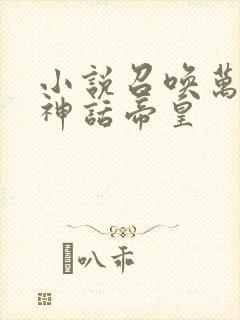 小說召喚萬
神話帝皇
叭乖